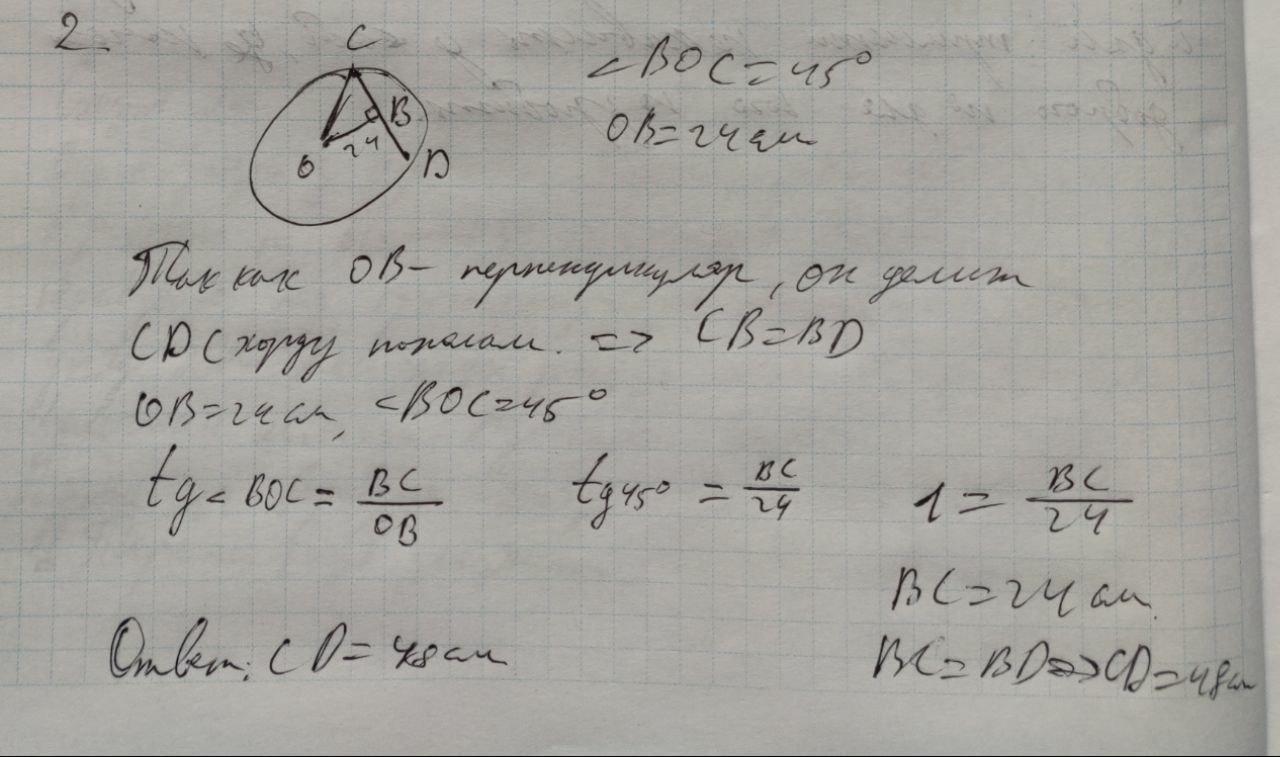 2
C
B
O
24
D
<BOC=45°
OB=24см
Так как OB- перпендикуляр, он делит
CD (хорду пополам. => CB=BD
OB=24см, <BOC=45°
tg<BOC = BC/OB tg45° = BC/24 1 = BC/24
BC=24см
BC=BD=>CD=48см
Ответ: CD=48см